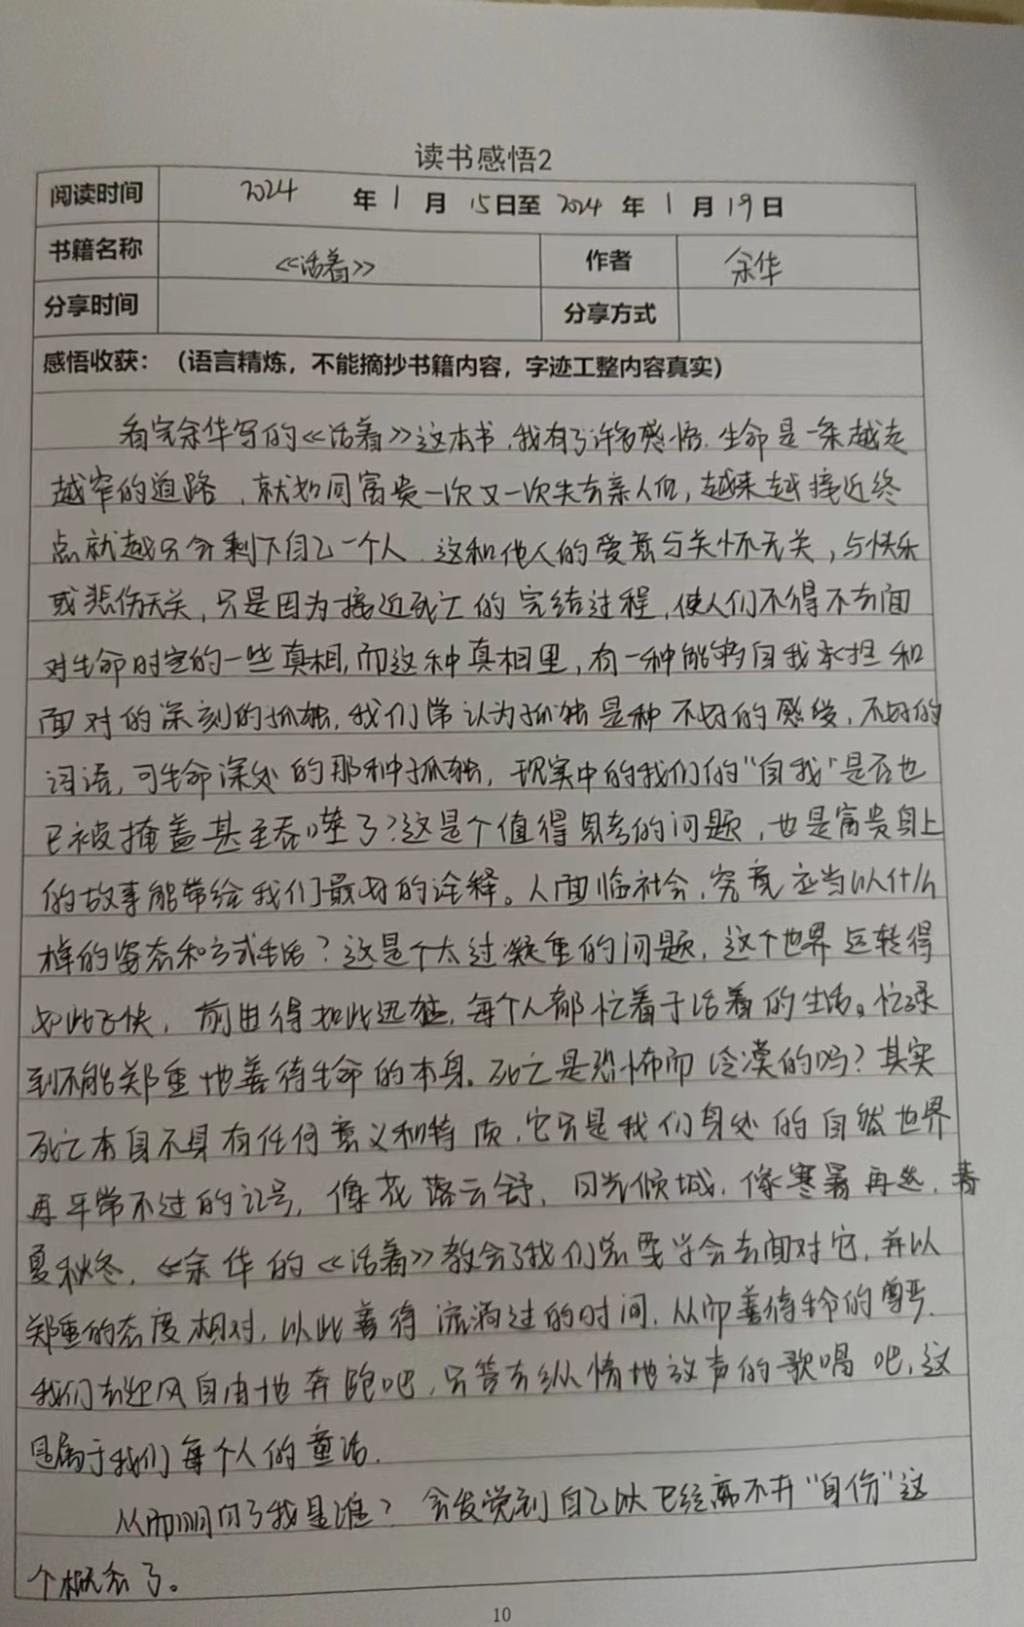 读书感悟2
阅读时间 2024 年 1 月 15日至 2024 年 1 月 19日
书籍名称 《活着》 作者 余华
分享时间 分享方式
感悟收获：（语言精炼，不能摘抄书籍内容，字迹工整内容真实）
看完余华写的《活着》这本书,我有了许多感悟.生命是一条越走
越窄的道路,就如同富贵一次又一次失去亲人但,越来越接近终
点就越只分剩下自己一个人.这和他人的爱意与关怀无关,与快乐
或悲伤无关,只是因为接近死亡的完结过程,使人们不得不去面
对生命时空的一些真相,而这种真相里,有一种能够自我承担和
面对的深刻的孤独,我们常认为孤独是种不好的感受,不好的
词语,可生命深处的那种孤独,现实中的我们的"自我"是否也
已被掩盖甚至吞噬了?这是个值得思考的问题,也是富贵身上
的故事能带给我们最好的诠释。人面临社会,究竟应当以什么
样的姿态和方式生活?这是个太过凝重的问题,这个世界运转得
如此飞快,前进得如此迅猛,每个人都忙着于活着的生活。忙碌
到不能郑重地善待生命的本身.死亡是恐怖而冷漠的吗?其实
死亡本身不具有任何意义和特质,它只是我们身处的自然世界
再平常不过的记号,像花落云舒,日光倾城,像寒暑再迭,春
夏秋冬,《余华的《活着》教会了我们需要学会去面对它,并以
郑重的态度相对,以此善待流淌过的时间,从而善待生命的尊严.
我们去迎风自由地奔跑吧,只管去纵情地放声的歌唱吧,这
是属于我们每个人的童话.
从而明白了我是谁?会发觉到自己似已经离不开"自份"这
个概念了。
10